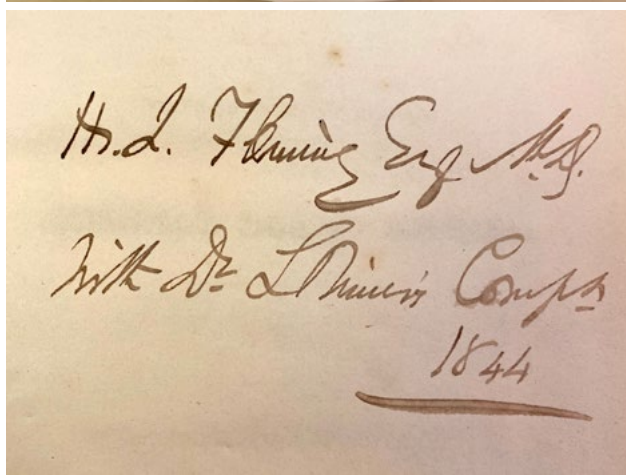 H. J. Fleming Esq M.D.
With Dr Compts
1844